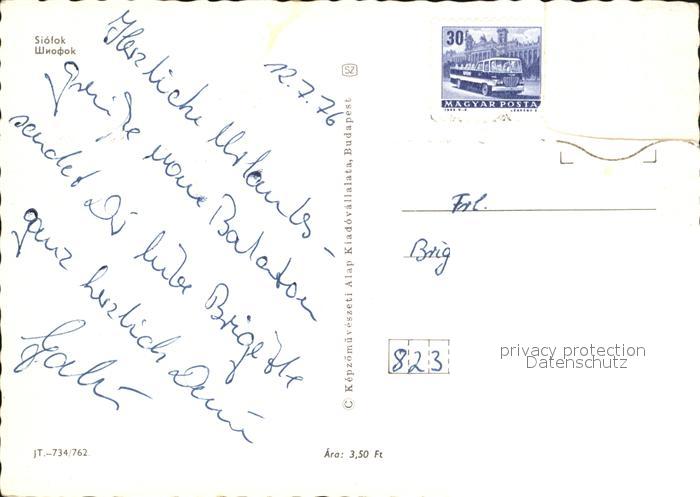 Siófok
Шиофок
12.7.76
Herzliche Urlaubs-
grüße vom Balaton
sendet Dir liebe Brigitte
ganz herzlich Deine
SZ
© Képzőművészeti Alap Kiadóvállalata, Budapest
30f
MAGYAR POSTA
Frl.
Brig
823
privacy protection
Datenschutz
JT.–734/762.
Ára: 3,50 Ft